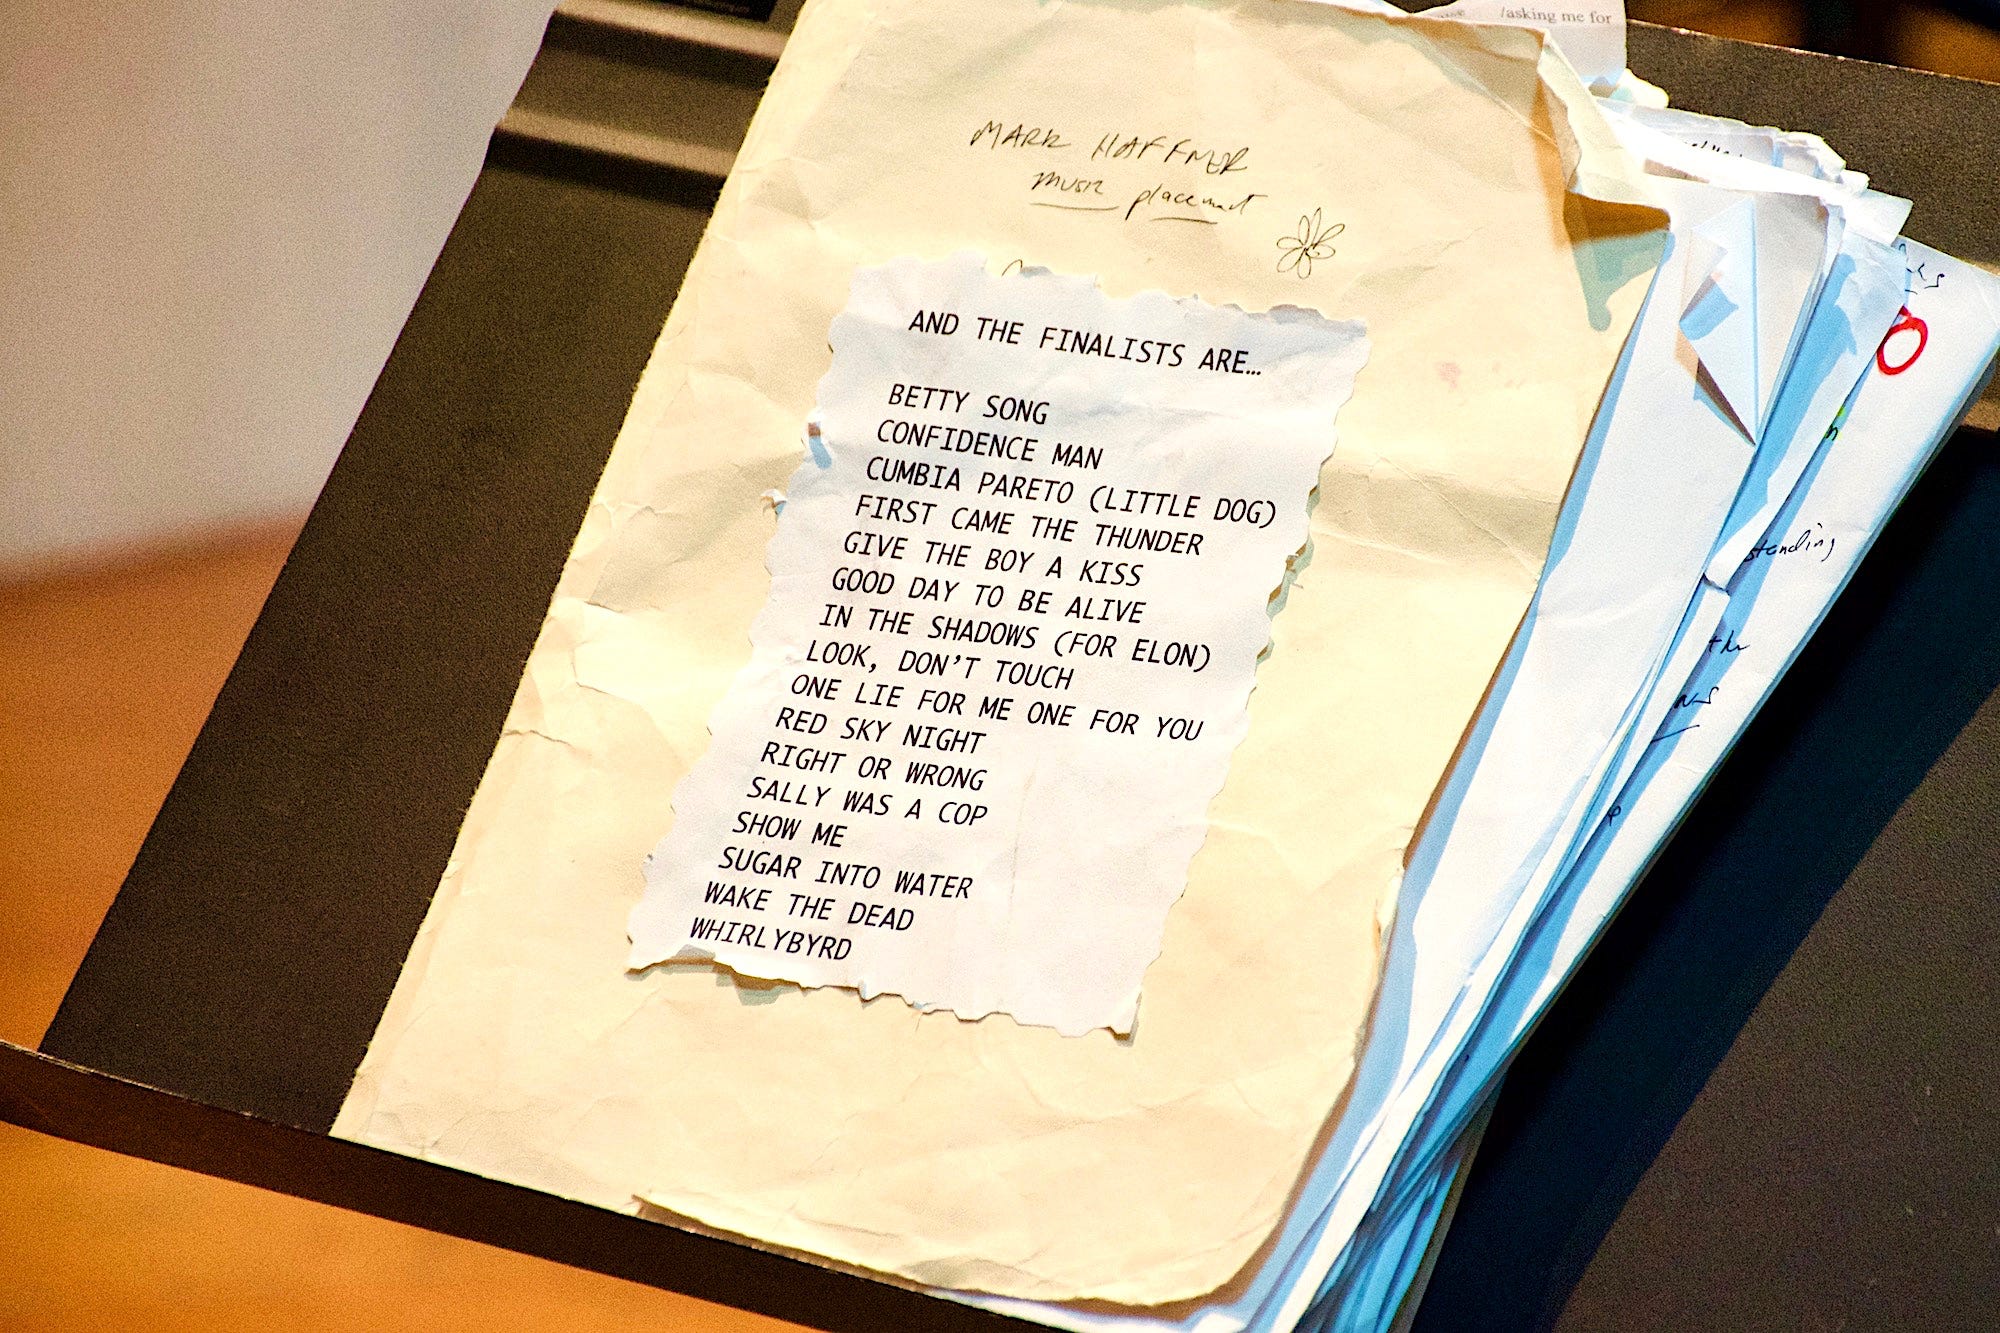 /asking me for
MARK HAFFNER
music placement
AND THE FINALISTS ARE…
BETTY SONG
CONFIDENCE MAN
CUMBIA PARETO (LITTLE DOG)
FIRST CAME THE THUNDER
GIVE THE BOY A KISS
GOOD DAY TO BE ALIVE
IN THE SHADOWS (FOR ELON)
LOOK, DON’T TOUCH
ONE LIE FOR ME ONE FOR YOU
RED SKY NIGHT
RIGHT OR WRONG
SALLY WAS A COP
SHOW ME
SUGAR INTO WATER
WAKE THE DEAD
WHIRLYBYRD
standing
the